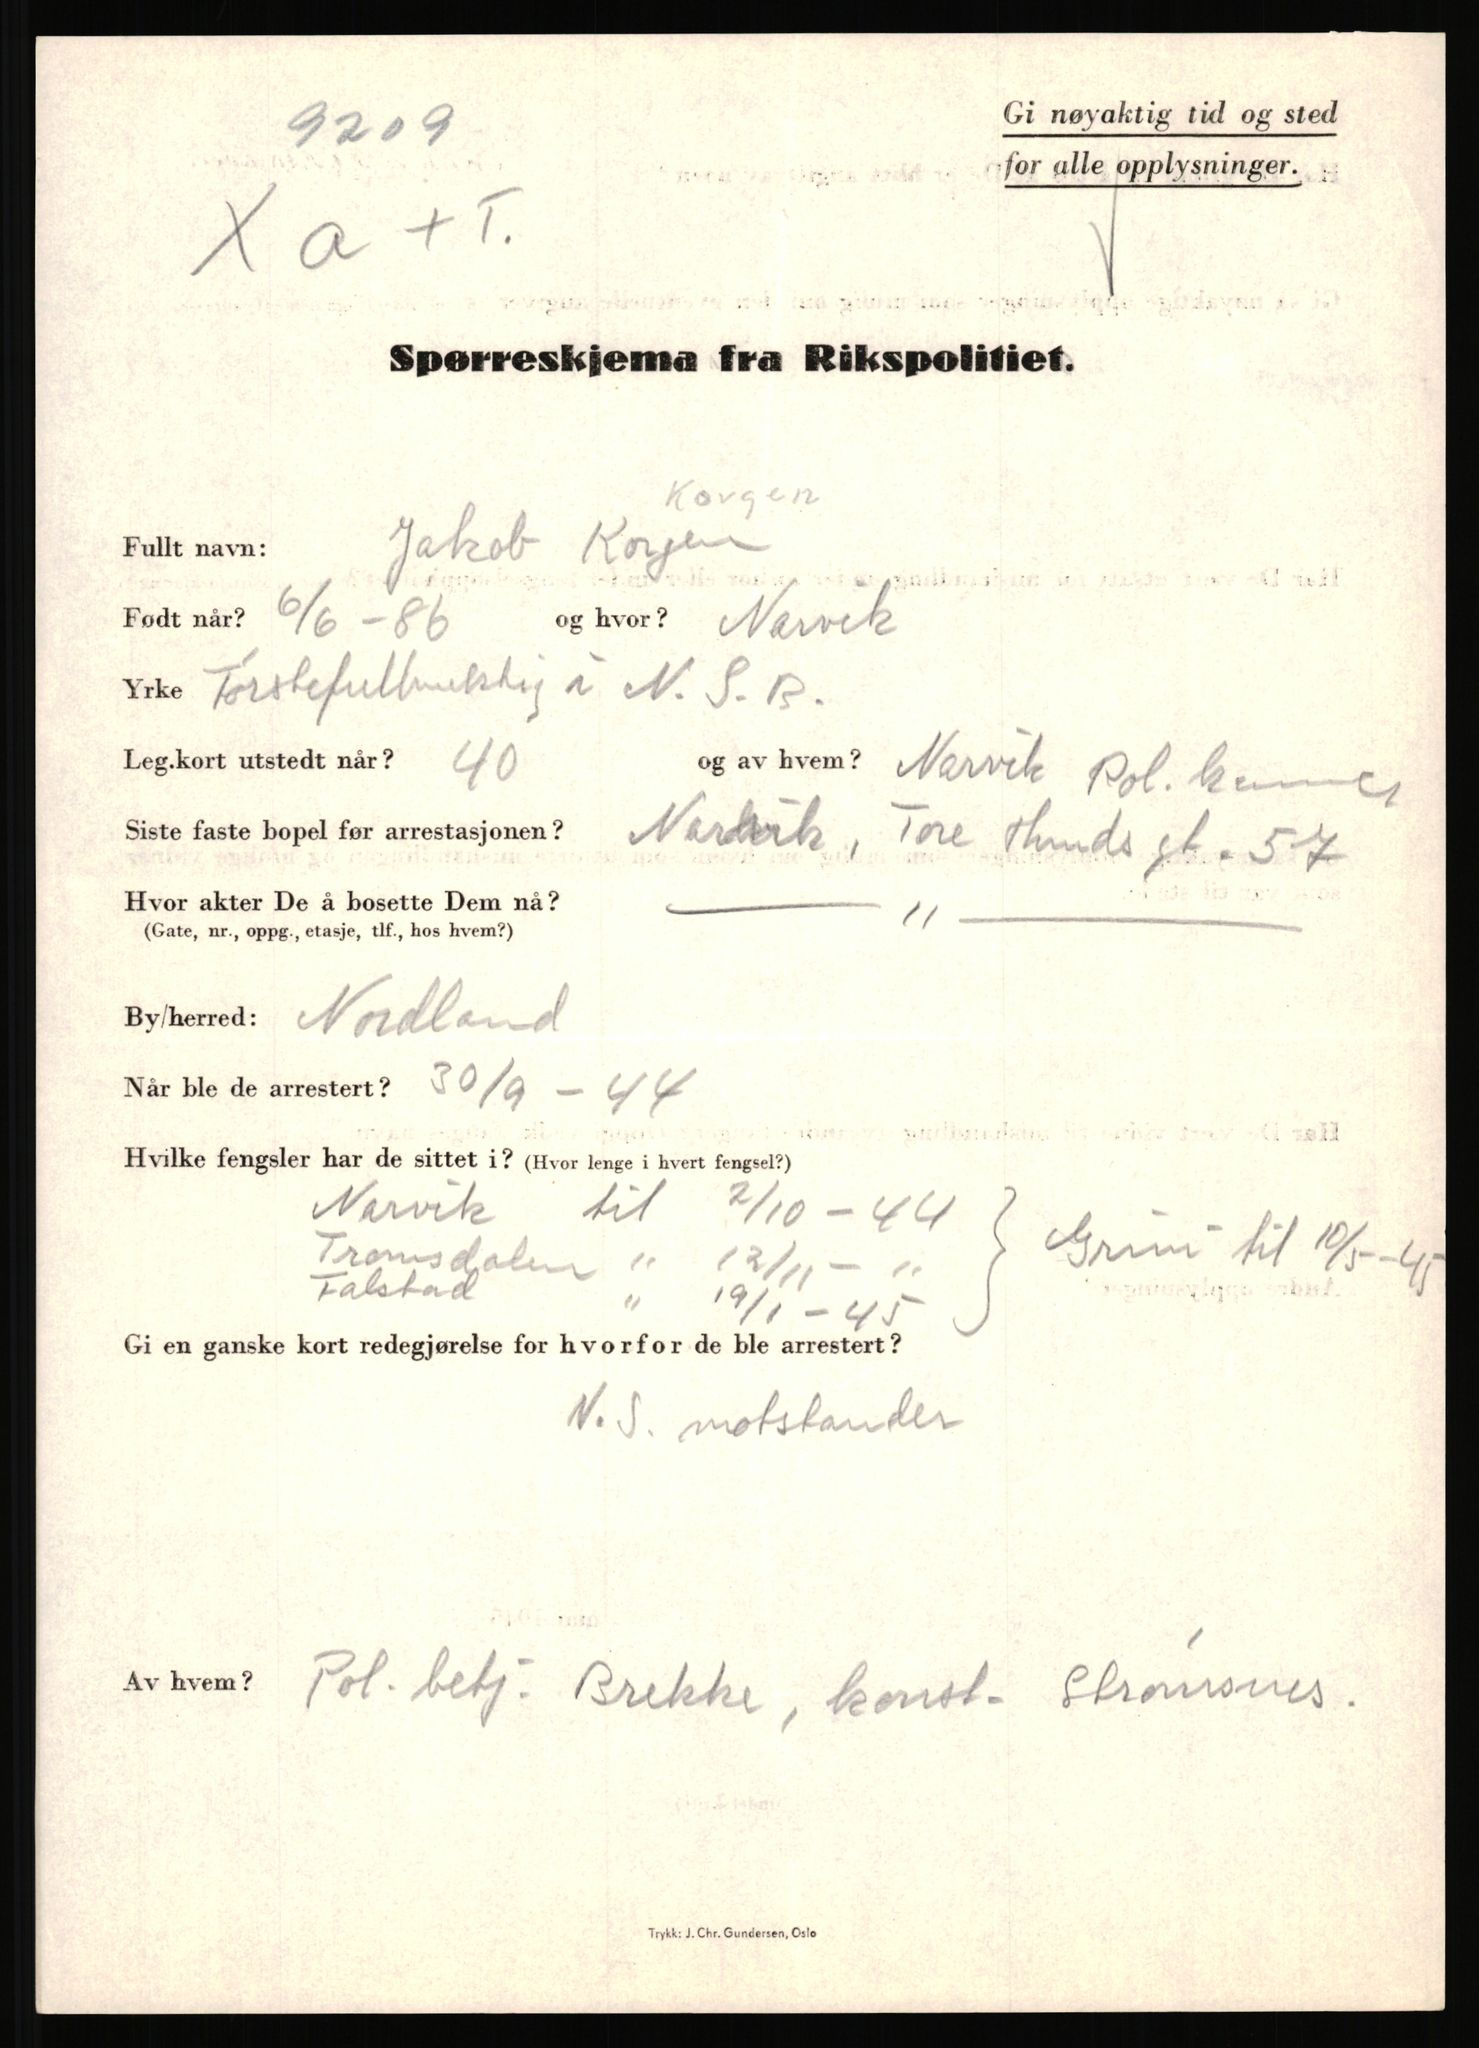 9209
Gi nøyaktig tid og sted
for alle opplysninger.
X a + T.
Spørreskjema fra Rikspolitiet.
Korgen
Fullt navn: Jakob Korgen
Født når? 6/6 - 86 og hvor? Narvik
Yrke Førstefullmektig i N. S. B.
Leg.kort utstedt når? 40 og av hvem? Narvik Pol. kammer
Siste faste bopel før arrestasjonen? Narvik, Tore Hunds gt. 57
Hvor akter De å bosette Dem nå? — " —
(Gate, nr., oppg., etasje, tlf., hos hvem?)
By/herred: Nordland
Når ble de arrestert? 30/9 - 44
Hvilke fengsler har de sittet i? (Hvor lenge i hvert fengsel?)
Narvik til 2/10 - 44
Tromsdalen " 12/11 - " } Grini til 10/5 - 45
Falstad " 19/1 - 45
Gi en ganske kort redegjørelse for hvorfor de ble arrestert?
N. S. motstander
Av hvem? Pol. betj. Brekke, konst. Strømsnes.
Trykk: J. Chr. Gundersen, Oslo